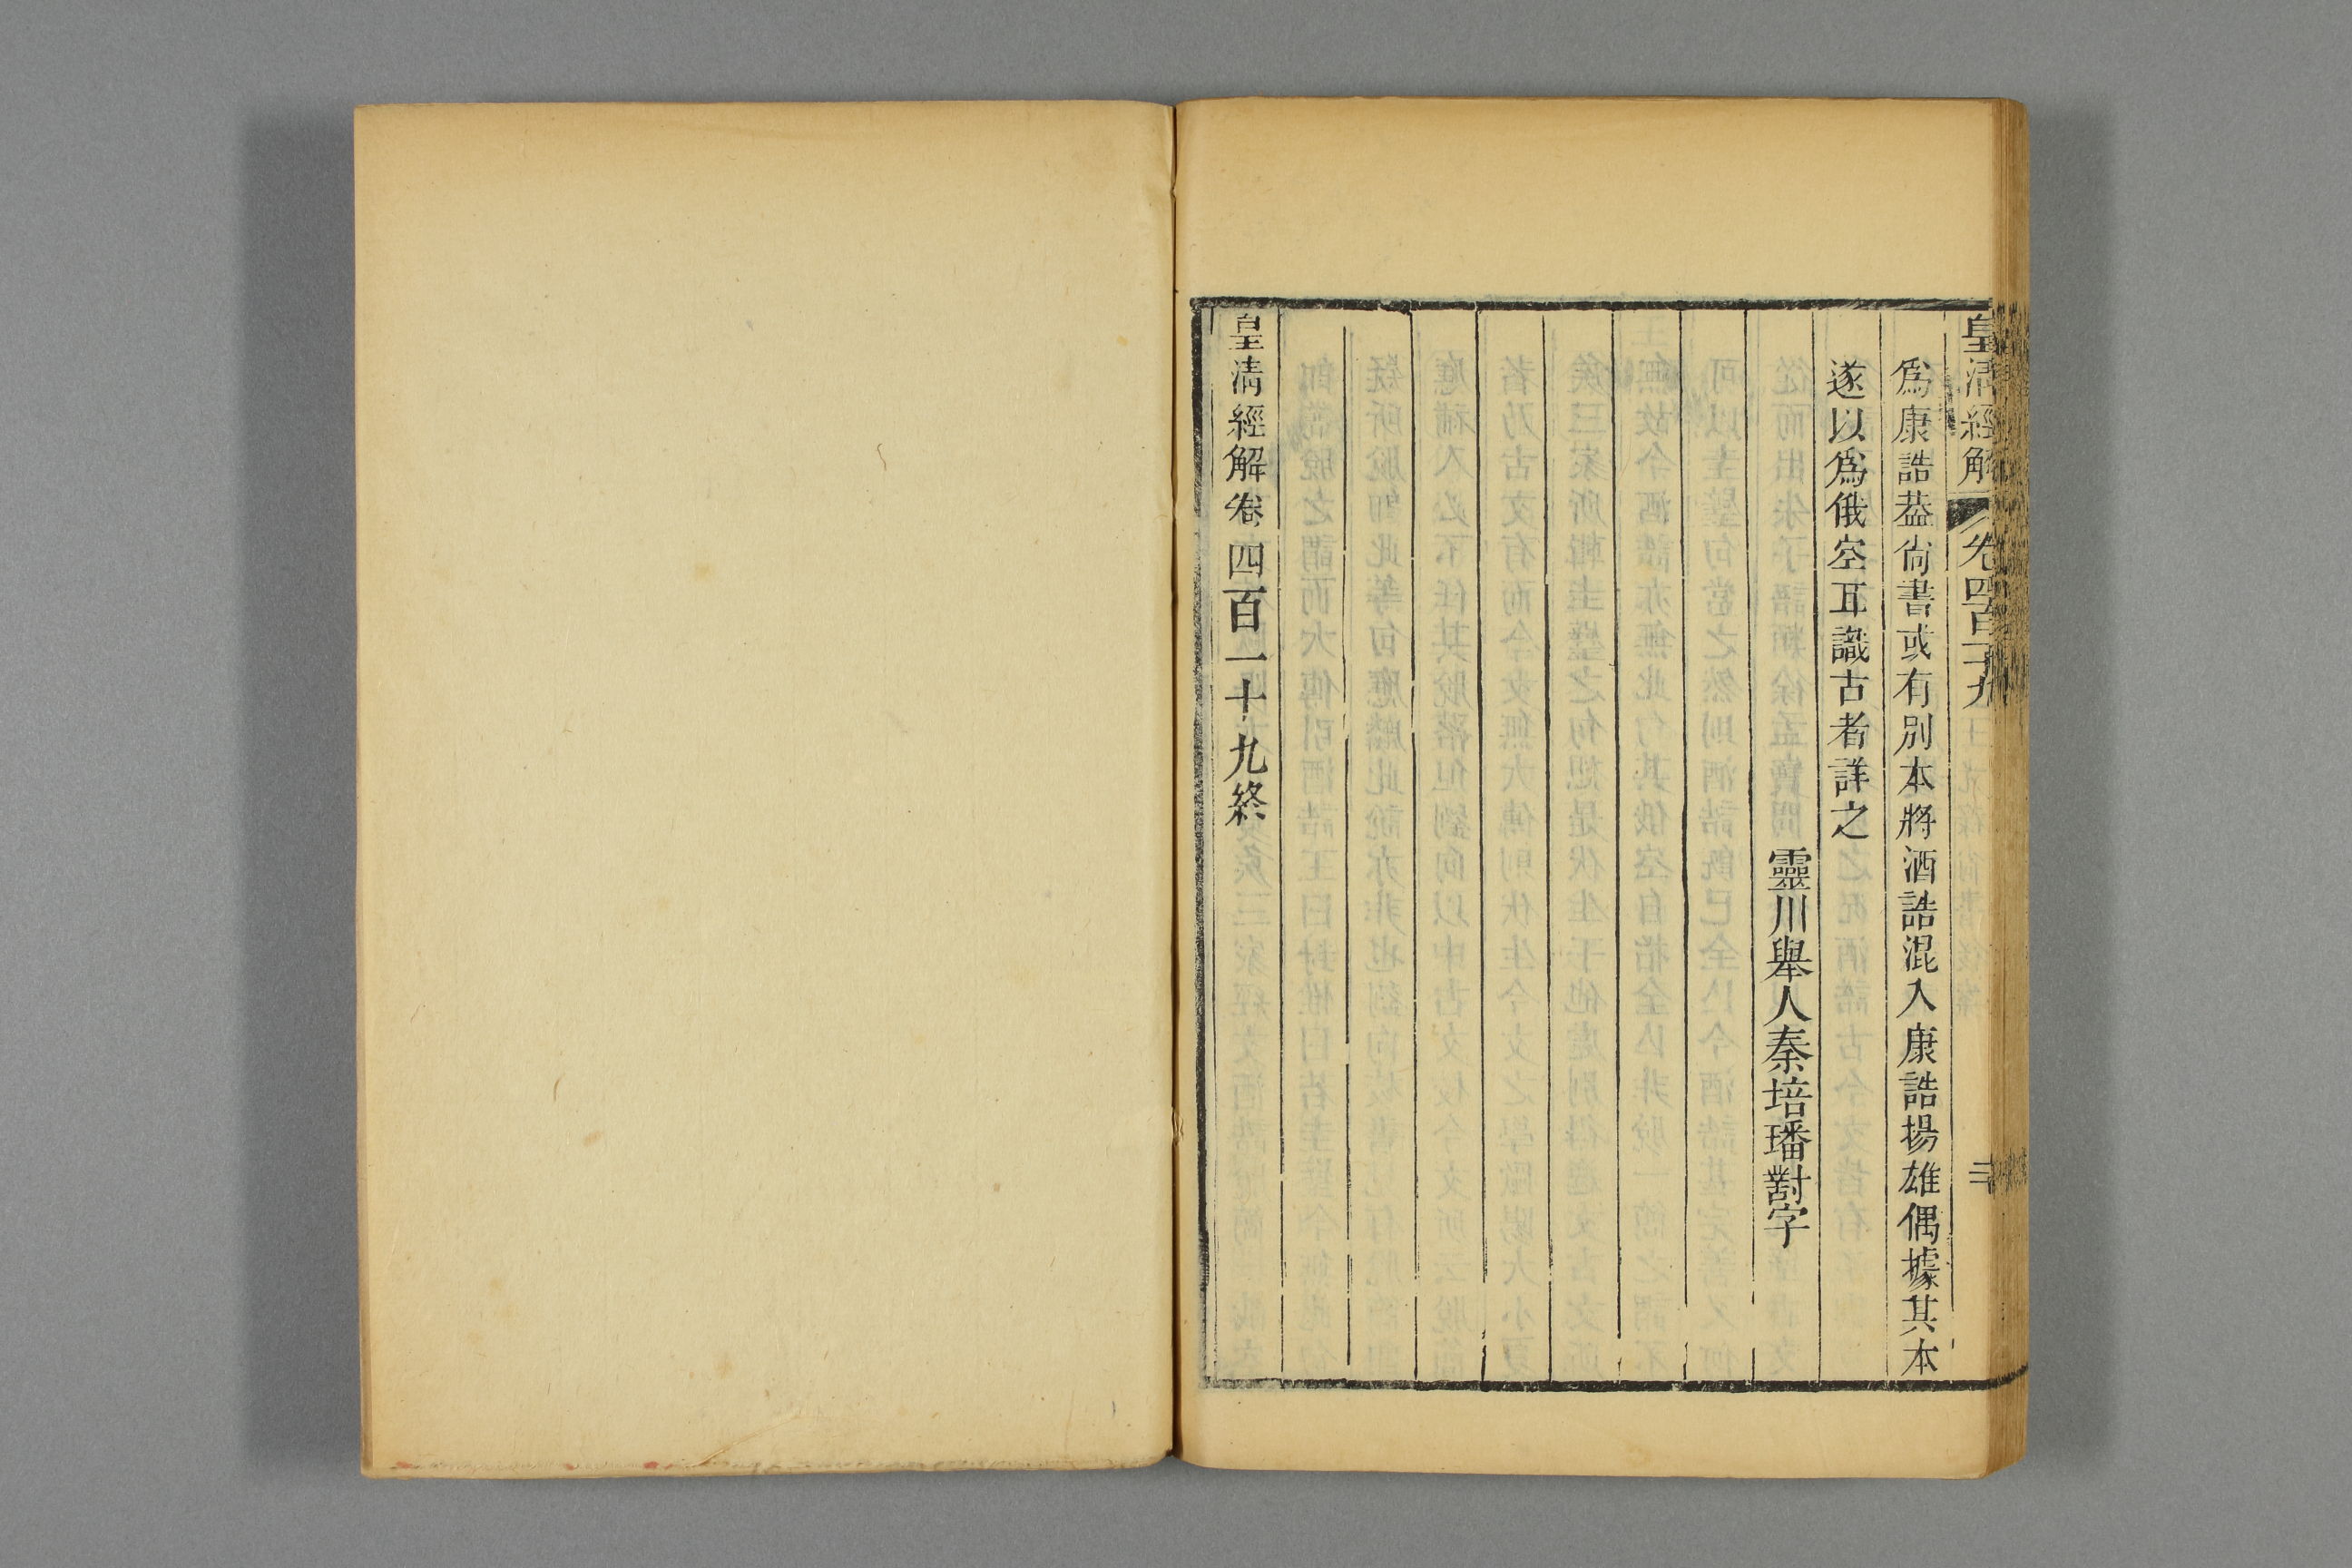 皇清經解 卷四百十九
爲康誥葢尙書或有別本將酒誥混入康誥揚雄偶據其本
遂以爲俄空耳識古者詳之
靈川舉人秦培璠對字
皇清經解卷四百一十九終